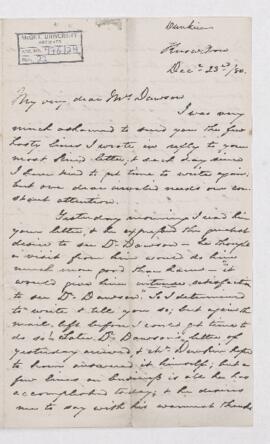 McGILL UNIVERSITY
ARCHIVES
ACC. NO.
REF. 
Dunkin
Knowlton
Decr 23rd/80.
My very dear Mrs Dawson
I was very
much ashamed to send you the few
hasty lines I wrote in reply to your
most kind letter, & each day since
I have tried to get time to write again,
but our dear invalid needs our con-
stant attention.
Yesterday morning I read him
your letter, & he expressed the greatest
desire to see Dr Dawson - he thought
a visit from him would do him
much more good than harm - it
would give him intense satisfaction
to see Dr Dawson. So I determined
to write & tell you so; but again the
mail left before I could get time to
do so. Later Dr Dawson's letter of
yesterday arrived & Mr Dunkin hoped
to have answered it himself; but a
few lines on business is all he has
accomplished today; & he desires
me to say with his warmest thanks